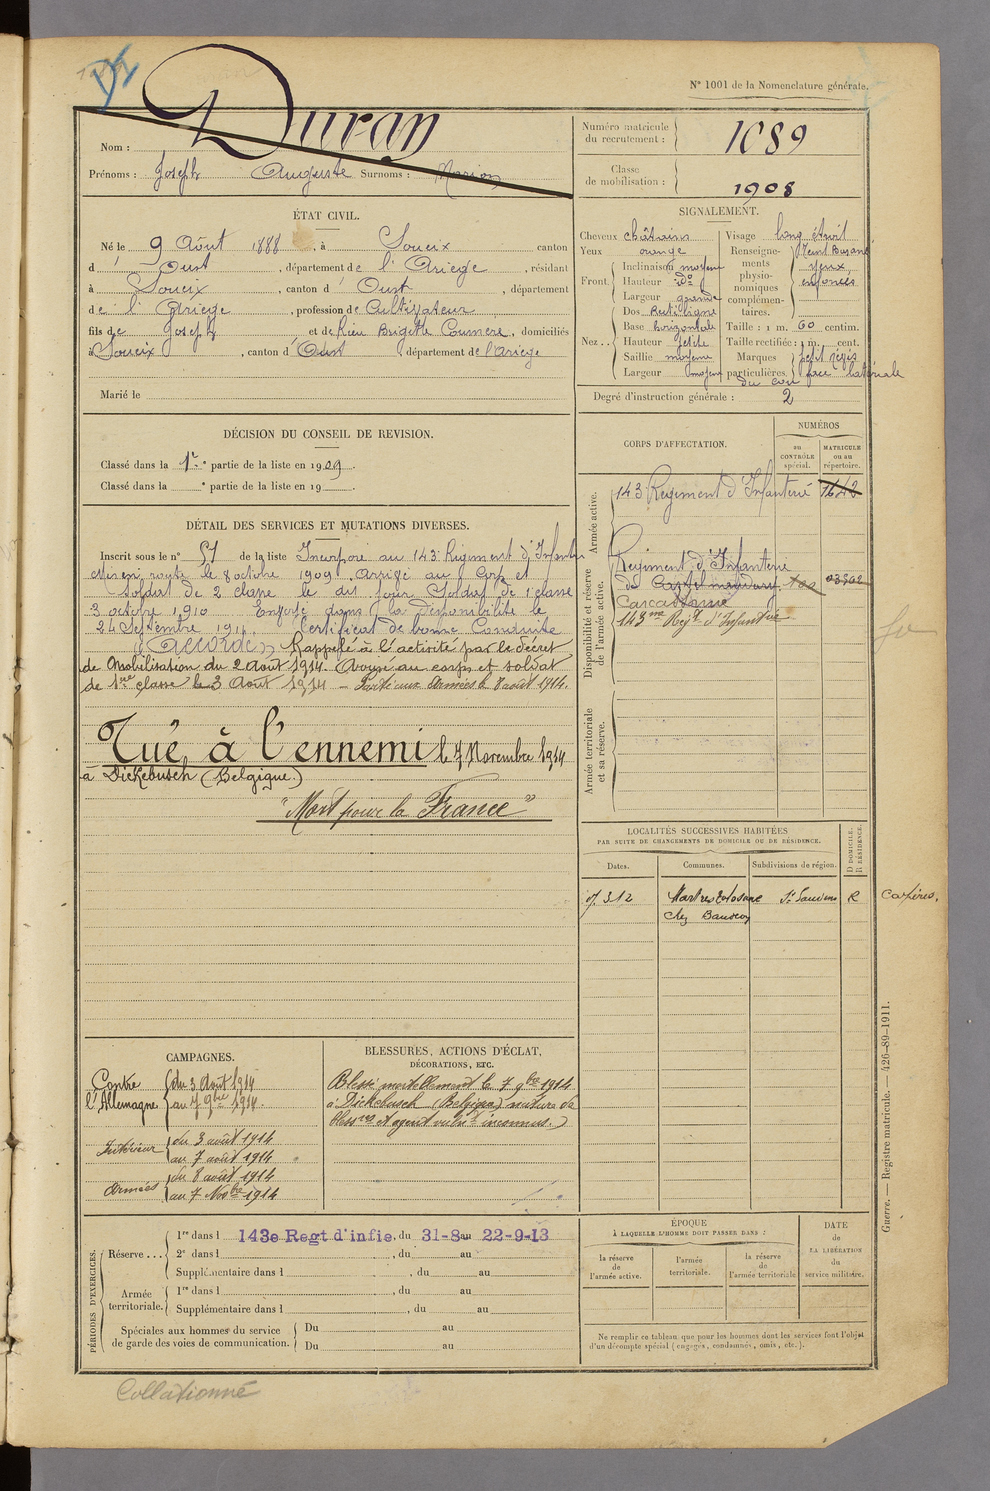 N° 1001 de la Nomenclature générale.
Nom : Duran
Prénoms : Joseph Auguste Surnoms : Marion
Numéro matricule du recrutement : 1089
Classe de mobilisation : 1908
ÉTAT CIVIL.
Né le 9 Août 1888, à Soueix canton
d' Oust, département de l'Ariege, résidant
à Soueix, canton d' Oust, département
de l'Ariege, profession de Cultivateur
fils de Joseph et de Rieu Brigette Coumere, domiciliés
à Soueix, canton d' Oust, département de l'Ariege
Marié le
SIGNALEMENT.
Cheveux châtains
Yeux orange
Front. Inclinaison moyenne
Hauteur do
Largeur grande
Nez.. Dos Rectiligne
Base horizontale
Hauteur petite
Saillie moyenne
Largeur moyen
Visage long étroit
Renseignements physionomiques complémentaires. Teint Basané
yeux
enfoncés
Taille : 1 m. 60 centim.
Taille rectifiée : 1 m. cent.
Marques particulières. petit
face latérale
du cou
Degré d'instruction générale : 2
DÉCISION DU CONSEIL DE REVISION.
Classé dans la 1re partie de la liste en 1909.
Classé dans la e partie de la liste en 19
CORPS D'AFFECTATION.
NUMÉROS
au CONTRÔLE spécial.
MATRICULE ou au répertoire.
Armée active.
143 Regiment d'Infanterie 1642
Disponibilité et réserve de l'armée active.
Regiment d'Infanterie
de Castelnaudary 03802
Carcassonne
143me Régt d'Infanterie
Armée territoriale et sa réserve.
DÉTAIL DES SERVICES ET MUTATIONS DIVERSES.
Inscrit sous le n° 51 de la liste Incorporé au 143 Régiment d'Infanterie
mis en route le 8 octobre 1909. Arrivé au Corps et
Soldat de 2 classe le dit jour. Soldat de 1 classe
3 octobre 1910 dans la disponibilité le
24 Septembre 1911. Certificat de bonne Conduite
"Accordé" Rappelé à l'activité par le décret
de Mobilisation du 2 Août 1914. Arrivé au corps et soldat
de 1re classe le 3 Août 1914 – Parti aux Armées le 8 août 1914.
Tué à l'ennemi le 7 Novembre 1914
à Dickebusch (Belgique.)
"Mort pour la France"
LOCALITÉS SUCCESSIVES HABITÉES
PAR SUITE DE CHANGEMENTS DE DOMICILE OU DE RÉSIDENCE.
Dates. Communes. Subdivisions de région. D DOMICILE. R RÉSIDENCE.
Martres Tolosane St Gaudens R Cazères.
Chez
CAMPAGNES.
Contre l'Allemagne du 3 Août 1914
au 7 9bre 1914.
Intérieur du 3 août 1914
au 7 août 1914
Armées du 8 août 1914
au 7 Novbre 1914
BLESSURES, ACTIONS D'ÉCLAT,
DÉCORATIONS, ETC.
Blessé mortellement le 7 9bre 1914
à Dickebusch (Belgique) nature de
blessres et agent vulnt inconnus.)
PÉRIODES D'EXERCICES.
Réserve ... 1re dans l 143e Regt d'infie. du 31-8 au 22-9-13
2e dans l , du au
Supplémentaire dans l , du au
Armée territoriale. 1re dans l , du au
Supplémentaire dans l , du au
Spéciales aux hommes du service de garde des voies de communication. Du au
Du au
ÉPOQUE
À LAQUELLE L'HOMME DOIT PASSER DANS :
la réserve de l'armée active.
l'armée territoriale.
la réserve de l'armée territoriale
DATE de LA LIBÉRATION du service militaire.
Ne remplir ce tableau que pour les hommes dont les services font l'objet
d'un décompte spécial (engagés, condamnés, omis, etc.).
Guerre. — Registre matricule. — 426-89-1911.
Collationné